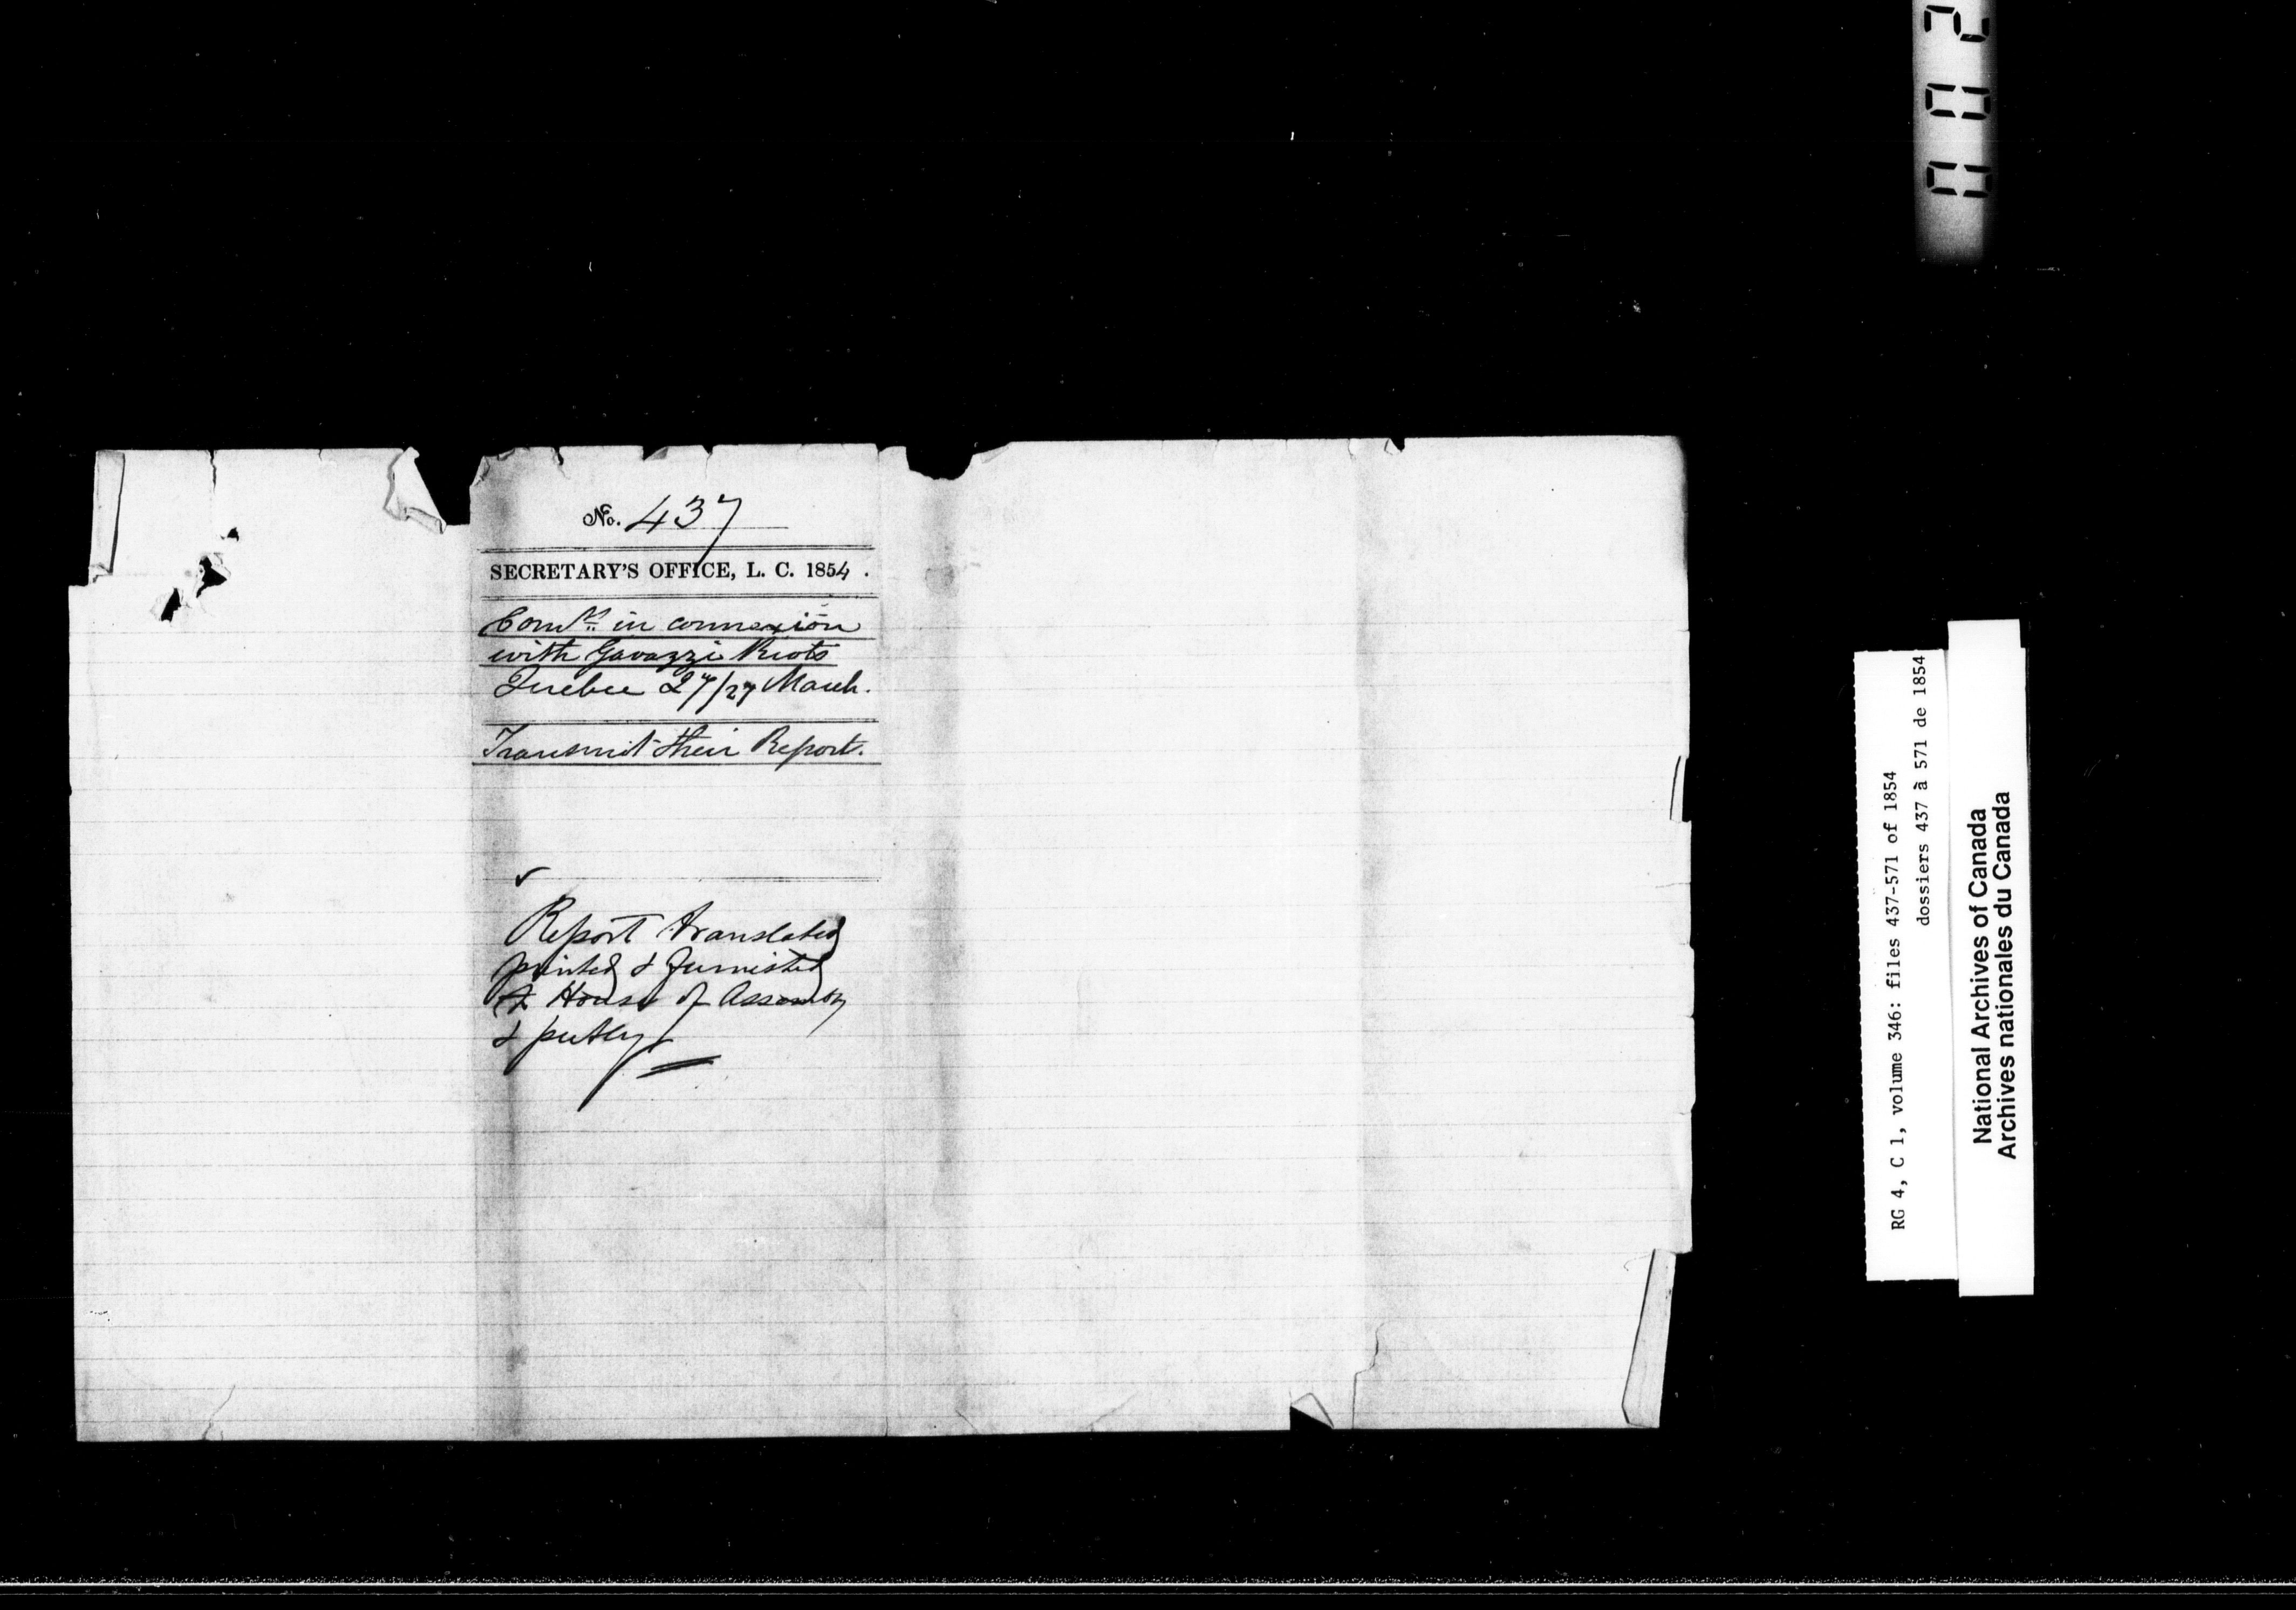 No. 437
SECRETARY'S OFFICE, L. C. 1854.
Comrs. in connexion
with Gavazzi Riots
Quebec 27/27 March.
Transmit their Report.
Report translated
printed & furnished
to House of Assembly
&
RG 4, C 1, volume 346: files 437-571 of 1854
dossiers 437 à 571 de 1854
National Archives of Canada
Archives nationales du Canada
002